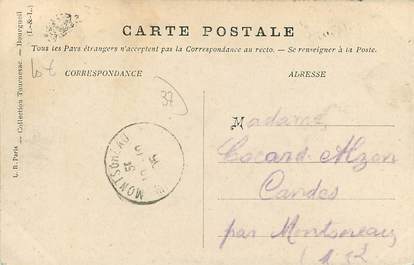 CARTE POSTALE
Tous les Pays étrangers n'acceptent pas la Correspondance au recto. - Se renseigner à la Poste.
CORRESPONDANCE
ADRESSE
L. B. Paris - Collection Tournesac. - Bourgueil
(I.-&-L.)
37
MONTSOREAU
Madame
Cocard-Alzon
Candes
par Montsoreau